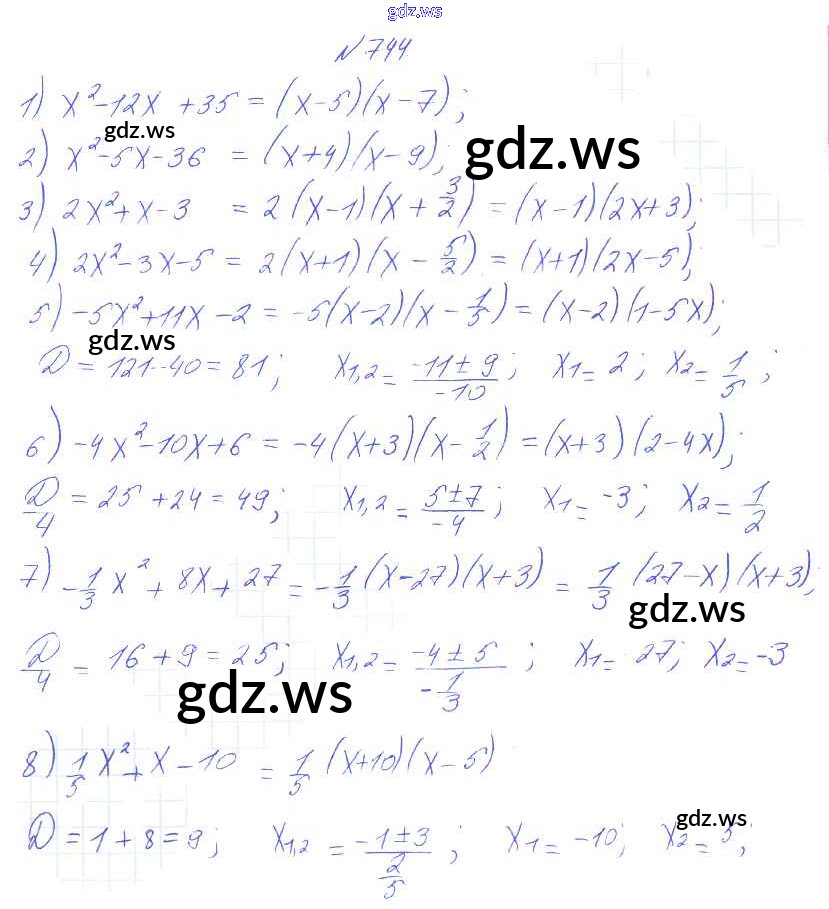 gdz.ws
N 744
1) x²-12x +35 = (x-5)(x-7);
gdz.ws
2) x²-5x-36 = (x+4)(x-9);
gdz.ws
3) 2x²+x-3 = 2(x-1)(x+3/2) = (x-1)(2x+3);
4) 2x²-3x-5 = 2(x+1)(x-5/2) = (x+1)(2x-5);
5) -5x²+11x-2 = -5(x-2)(x-1/5) = (x-2)(1-5x);
gdz.ws
D = 121-40 = 81; x1,2 = (-11±9)/(-10); x1 = 2; x2 = 1/5;
6) -4x²-10x+6 = -4(x+3)(x-1/2) = (x+3)(2-4x);
D/4 = 25+24 = 49; x1,2 = (5±7)/(-4); x1 = -3; x2 = 1/2
7) -1/3 x² + 8x + 27 = -1/3 (x-27)(x+3) = 1/3 (27-x)(x+3);
gdz.ws
D/4 = 16+9 = 25; x1,2 = (-4±5)/(-1/3); x1 = 27; x2 = -3
gdz.ws
8) 1/5 x² + x - 10 = 1/5 (x+10)(x-5)
gdz.ws
D = 1+8 = 9; x1,2 = (-1±3)/(2/5); x1 = -10; x2 =